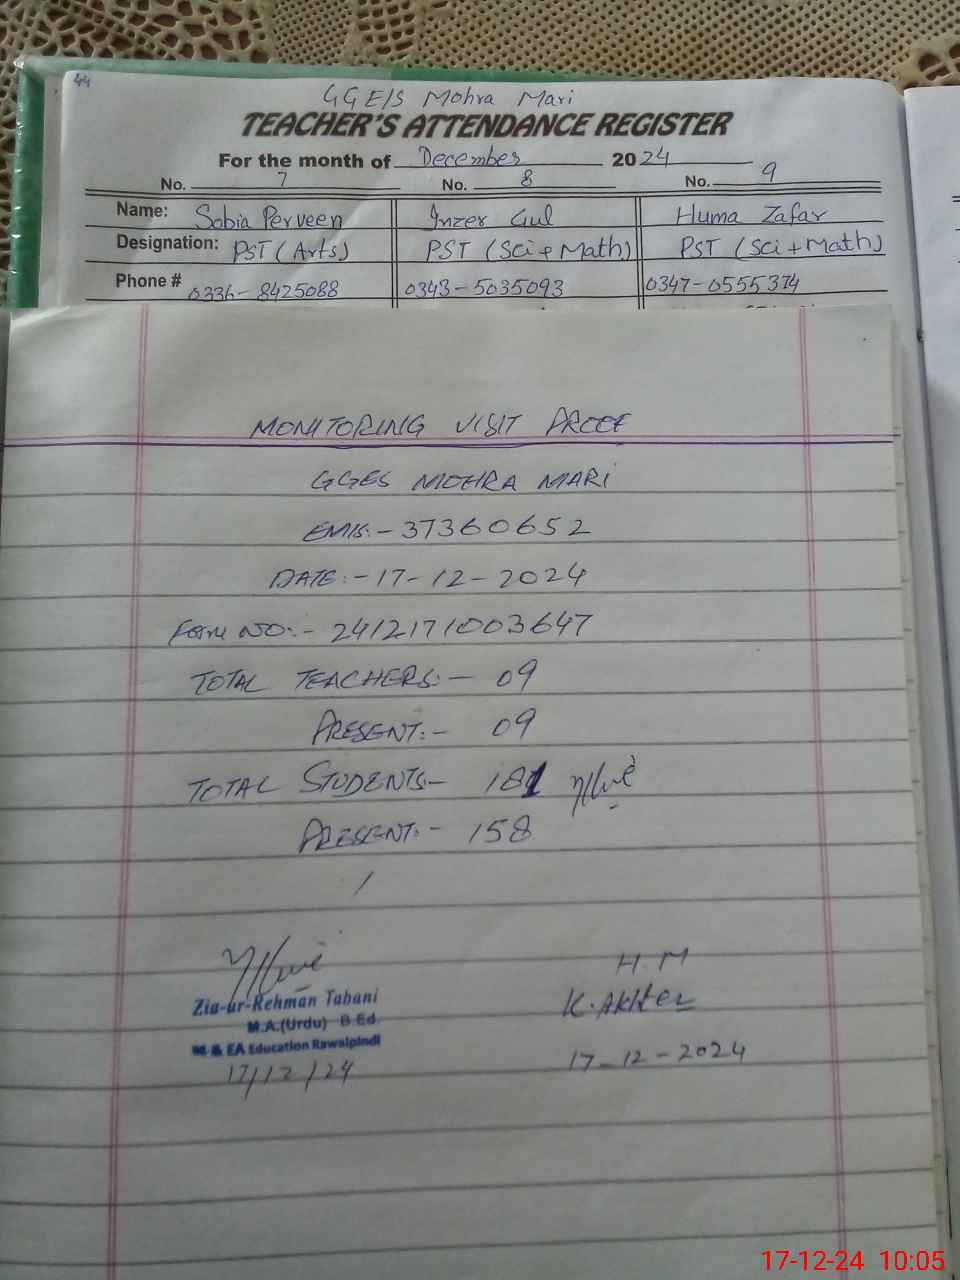 44
GGE/S Mohra Mari
TEACHER'S ATTENDANCE REGISTER
For the month of December 2024
No. 7 No. 8 No. 9
Name: Sobia Perveen Inzer Gul Huma Zafar
Designation: PST (Arts) PST (Sci + Math) PST (Sci + Math)
Phone # 0336-8425088 0343-5035093 0347-0555374
MONITORING VISIT PROOF
GGES MOHRA MARI
EMIS:- 37360652
DATE:- 17-12-2024
Form NO:- 2412171003647
TOTAL TEACHERS:- 09
PRESENT:- 09
TOTAL STUDENTS- 181
PRESENT:- 158
Zia-ur-Rehman Tabani
M.A.(Urdu) B.Ed.
M & EA Education Rawalpindi
17/12/24
H.M
K.Akhter
17-12-2024
17-12-24 10:05